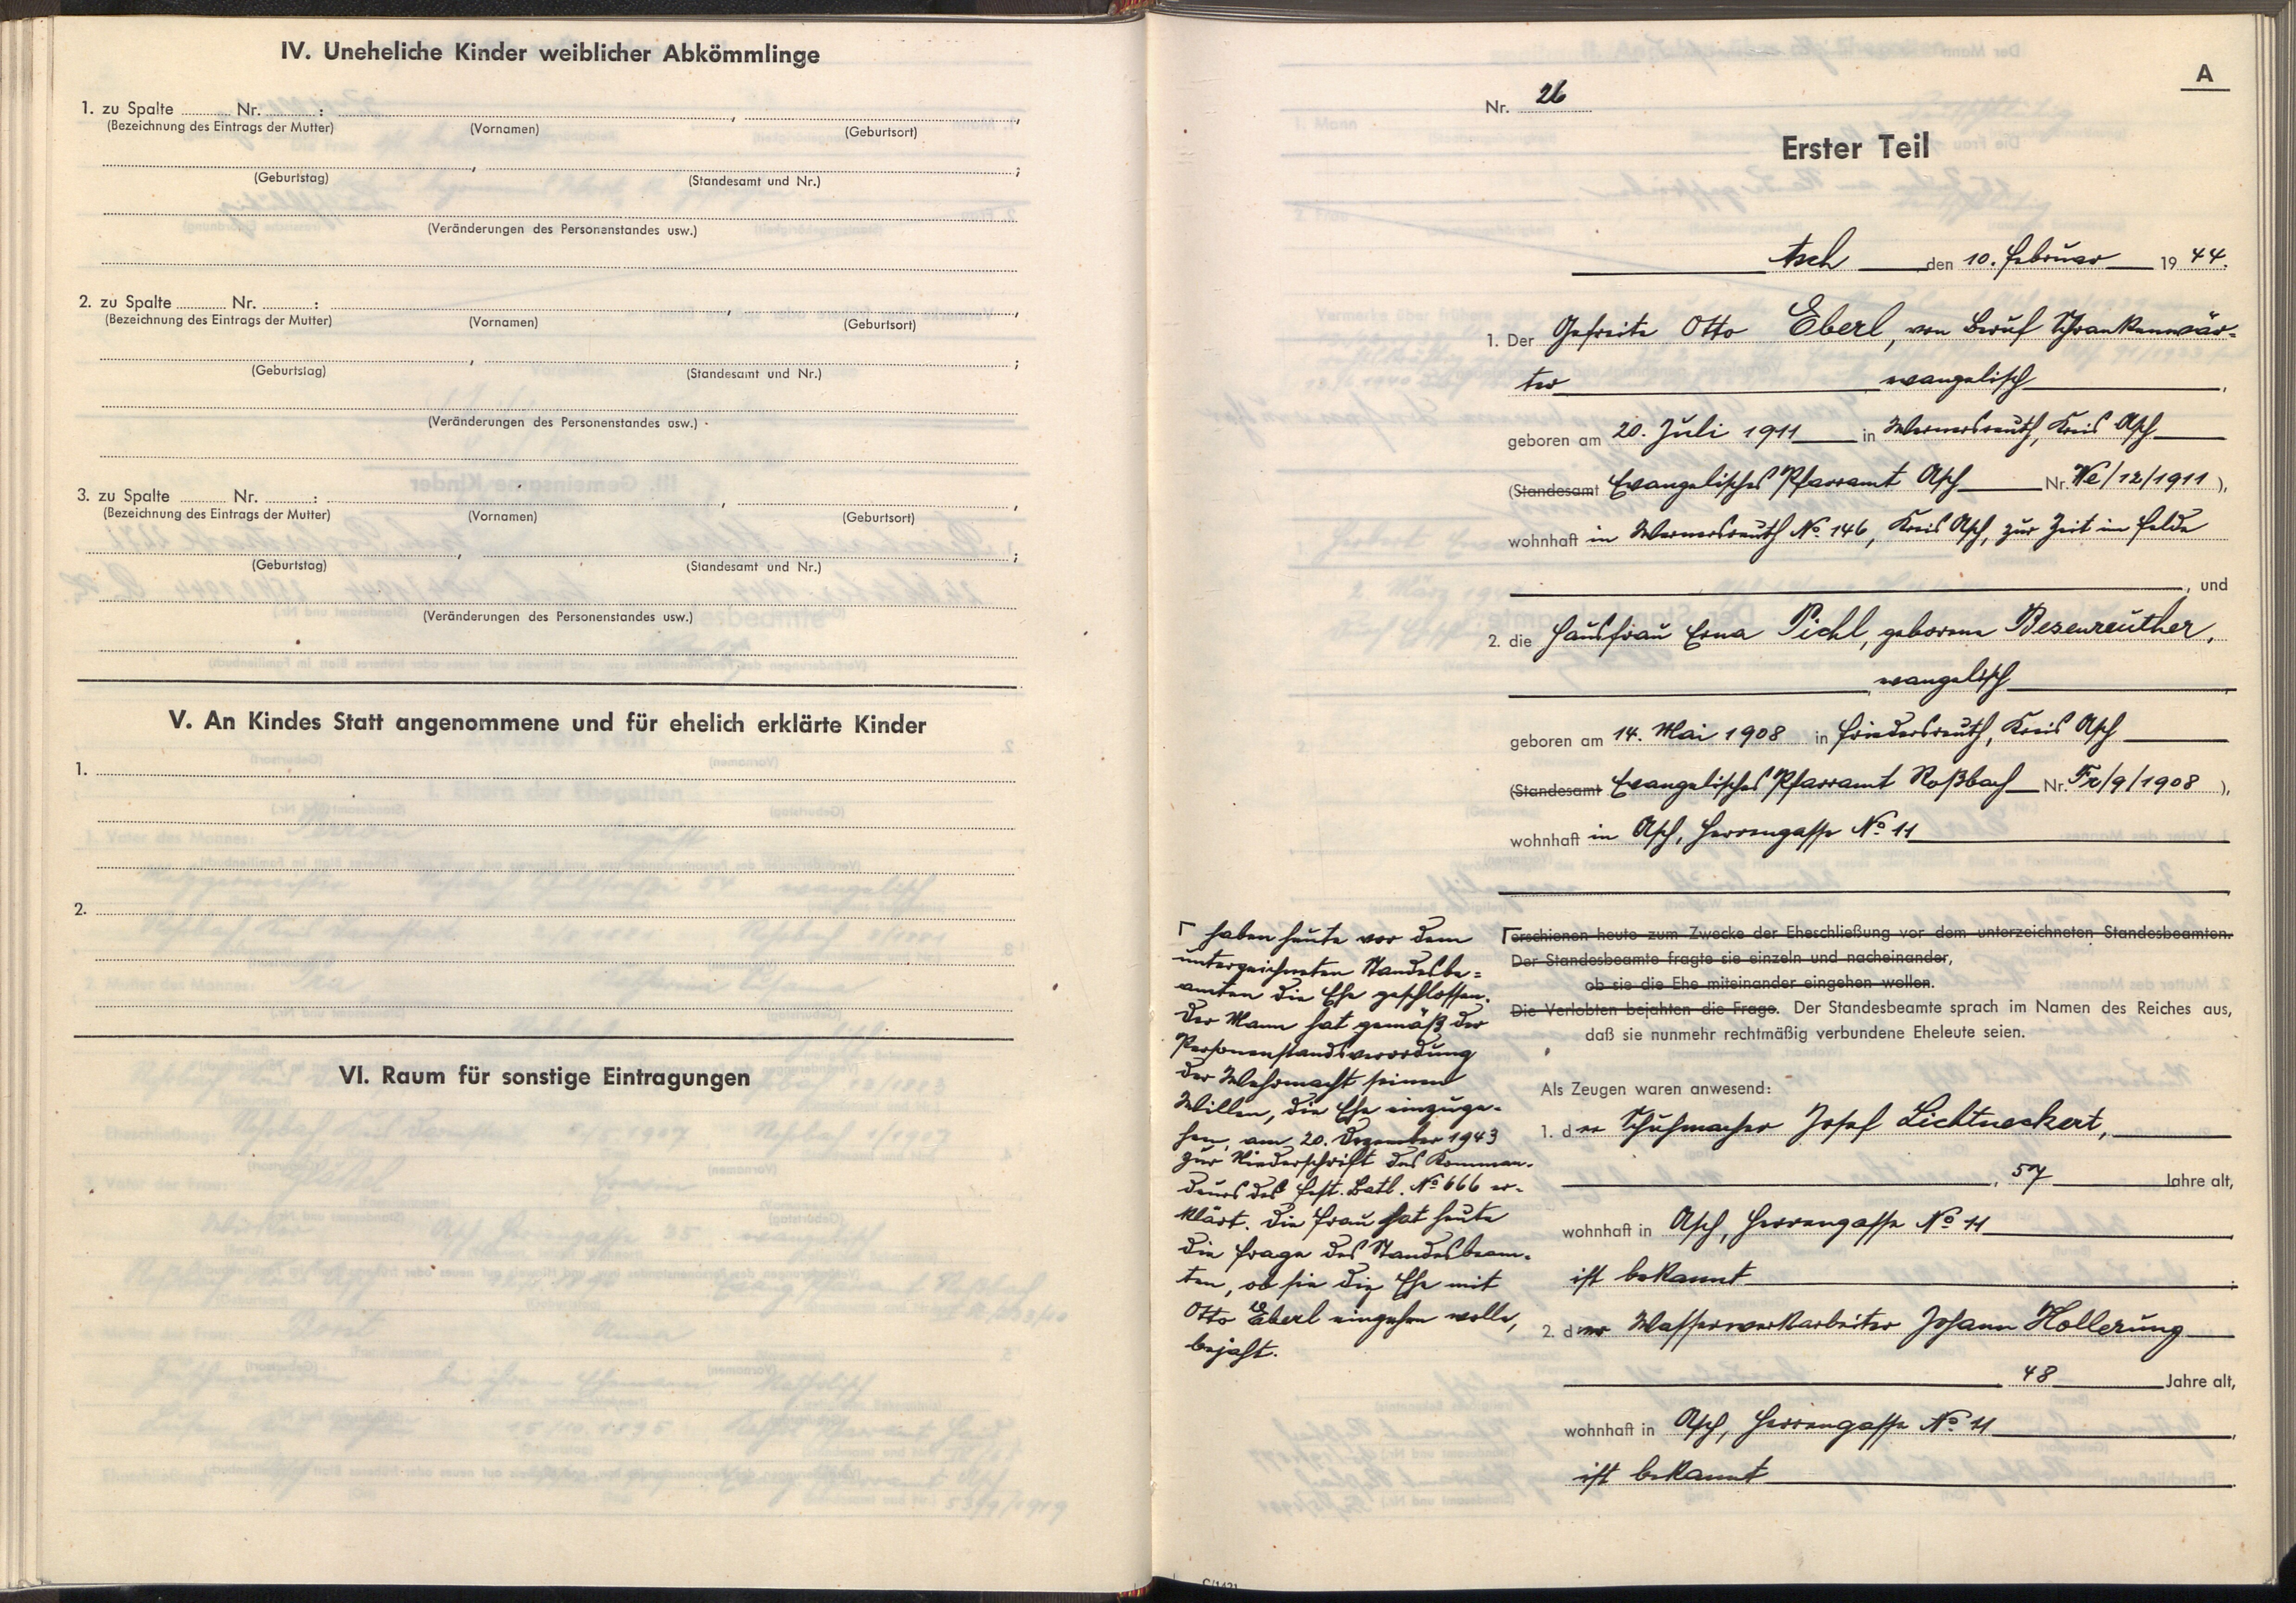 IV. Uneheliche Kinder weiblicher Abkömmlinge
1. zu Spalte Nr. : , ,
(Bezeichnung des Eintrags der Mutter) (Vornamen) (Geburtsort)
, ;
(Geburtstag) (Standesamt und Nr.)
(Veränderungen des Personenstandes usw.)
2. zu Spalte Nr. : , ,
(Bezeichnung des Eintrags der Mutter) (Vornamen) (Geburtsort)
, ;
(Geburtstag) (Standesamt und Nr.)
(Veränderungen des Personenstandes usw.)
3. zu Spalte Nr. : , ,
(Bezeichnung des Eintrags der Mutter) (Vornamen) (Geburtsort)
, ;
(Geburtstag) (Standesamt und Nr.)
(Veränderungen des Personenstandes usw.)
V. An Kindes Statt angenommene und für ehelich erklärte Kinder
1.
2.
VI. Raum für sonstige Eintragungen
A
Nr. 26
Erster Teil
Asch den 10. Februar 1944.
1. Der Gefreite Otto Eberl, von Beruf Schrankenwär-
ter evangelisch,
geboren am 20. Juli 1911 in Wernersreuth, Kreis Asch
(Standesamt Evangelisches Pfarramt Asch Nr. We/12/1911),
wohnhaft in Wernersreuth No. 146, Kreis Asch, zur Zeit im Felde
, und
2. die Hausfrau Erna Pichl, geborene Bezenreuther,
evangelisch,
geboren am 14. Mai 1908 in Friedersreuth, Kreis Asch
(Standesamt Evangelisches Pfarramt Roßbach Nr. Fr/9/1908),
wohnhaft in Asch, Herrengasse No. 11
erschienen heute zum Zwecke der Eheschließung vor dem unterzeichneten Standesbeamten.
Der Standesbeamte fragte sie einzeln und nacheinander,
ob sie die Ehe miteinander eingehen wollen.
Die Verlobten bejahten die Frage. Der Standesbeamte sprach im Namen des Reiches aus,
daß sie nunmehr rechtmäßig verbundene Eheleute seien.
haben heute vor dem
unterzeichneten Standesbe-
amten die Ehe geschlossen.
Der Mann hat gemäß der
Personenstandsverordung
der Wehrmacht seinen
Willen, die Ehe einzuge-
hen, am 20. Dezember 1943
zur Niederschrift des Komman-
deurs des Fest. Batl. No. 666 er-
klärt. Die Frau hat heute
die Frage des Standesbeam-
ten, ob sie die Ehe mit
Otto Eberl eingehen wolle,
bejaht.
Als Zeugen waren anwesend:
1. der Schuhmacher Josef Lichtneckert,
, 57 Jahre alt,
wohnhaft in Asch, Herrengasse No. 11,
ist bekannt;
2. der Wasserwerkarbeiter Johann Hollerung
, 48 Jahre alt,
wohnhaft in Asch, Herrengasse No. 11,
ist bekannt.